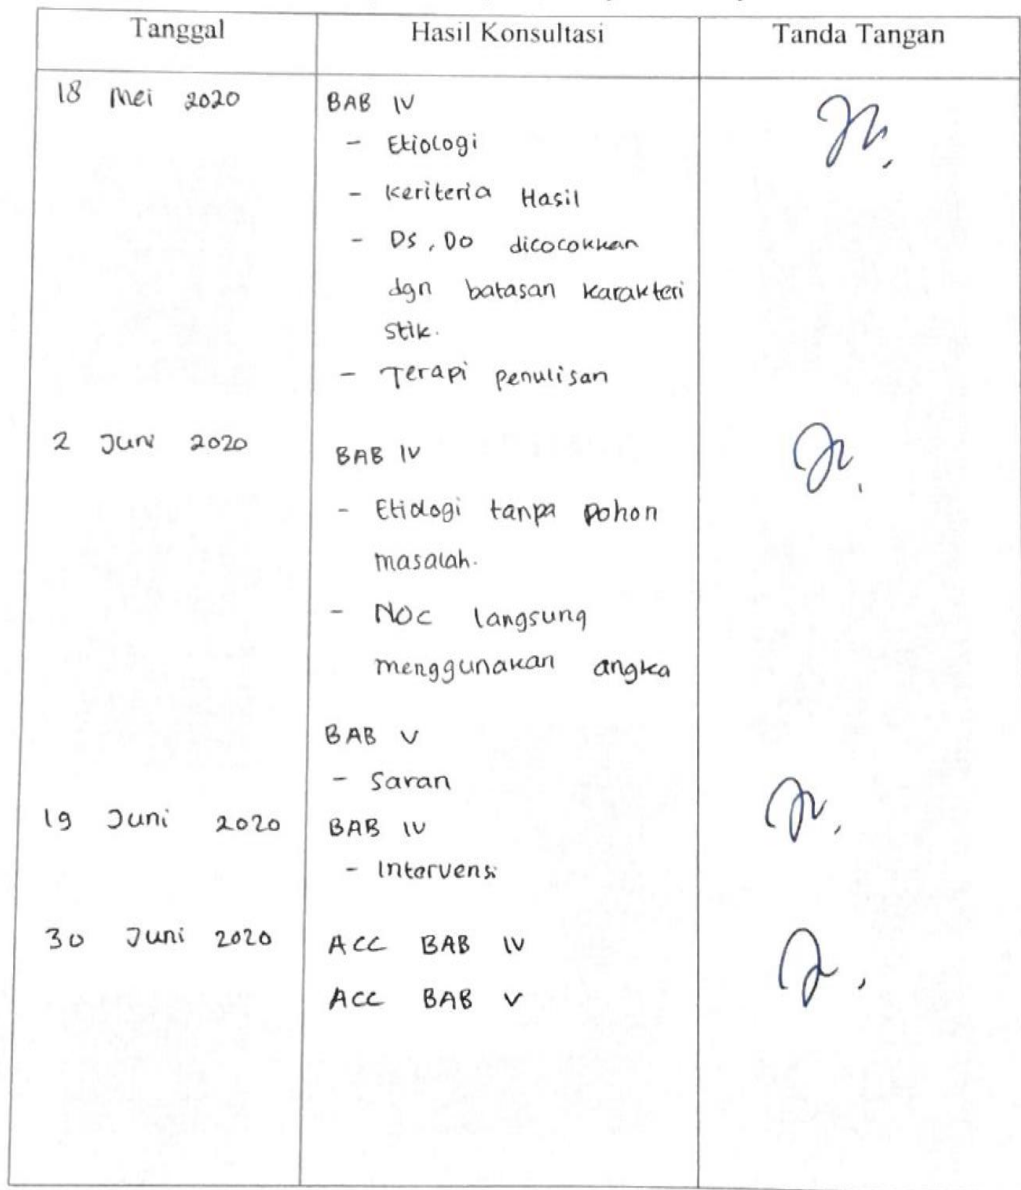 Tanggal Hasil Konsultasi Tanda Tangan
18 Mei 2020 BAB IV
- Etiologi
- Keriteria Hasil
- DS, DO dicocokkan
dgn batasan karakteri
stik.
- Terapi penulisan
2 Juni 2020 BAB IV
- Etiologi tanpa pohon
masalah.
- NOC langsung
menggunakan angka
BAB V
- Saran
19 Juni 2020 BAB IV
- Intervensi
30 Juni 2020 ACC BAB IV
ACC BAB V